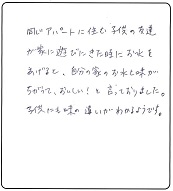 同じアパートに住む子供の友達
が家に遊びにきた時にお水を
あげると、自分の家のお水と味が
ちがって、おいしい！と言っておりました。
子供にも味の違いがわかるようです。